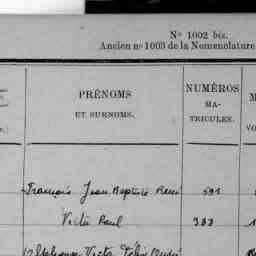 Nº 1002 bis.
Ancien nº 1003 de la Nomenclature
PRÉNOMS
ET SURNOMS.
NUMÉROS
MA-
TRICULES.
François Jean Baptiste René 591
Victor Paul 383
Alphonse Victor Félix André